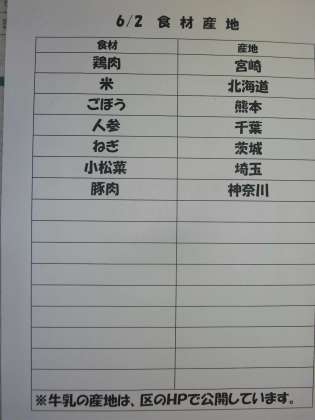 6/2 食材産地
食材 産地
鶏肉 宮崎
米 北海道
ごぼう 熊本
人参 千葉
ねぎ 茨城
小松菜 埼玉
豚肉 神奈川
※牛乳の産地は、区のHPで公開しています。